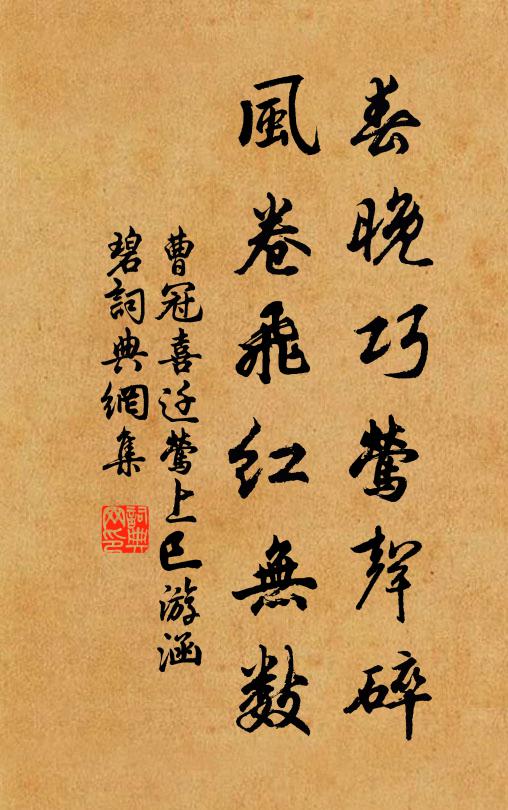 春晚巧鶯聲碎
風卷飛紅無數
曹冠喜迁鶯上巳游涵
碧詞典網集
詞典网印